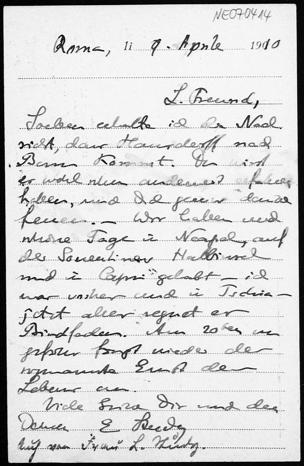 NE070414
Roma, li 9. Aprile 1910
L. Freund,
Soeben erhalte ich die Nach
richt, dass Hausdorff nach
Bonn kommt. Du wirst
es wohl schon anderweit erfahren
haben, und Dich genau
freuen. – Wir haben
schöne Tage in Neapel, auf
der Sorrentiner Halbinsel
und in Capri gehabt – ich
war vorher
jetzt aber regnet es
Bindfaden. Am 20ten
fängt wieder der
sogenannte Ernst des
Lebens an.
Viele Grüsse Dir und den
Damen E Study